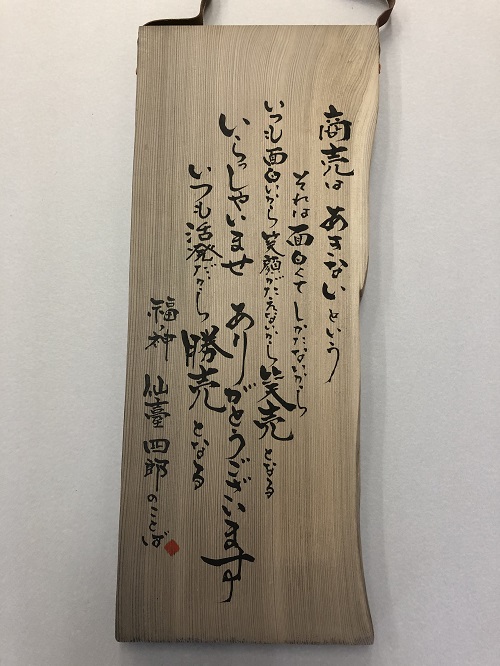 商売は あきないという
それは面白くてしかたないから
いつも面白いから笑顔がたえないから笑売となる
いらっしゃいませ ありがとうございます
いつも活発だから勝売となる
福ノ神 仙臺四郎のことば